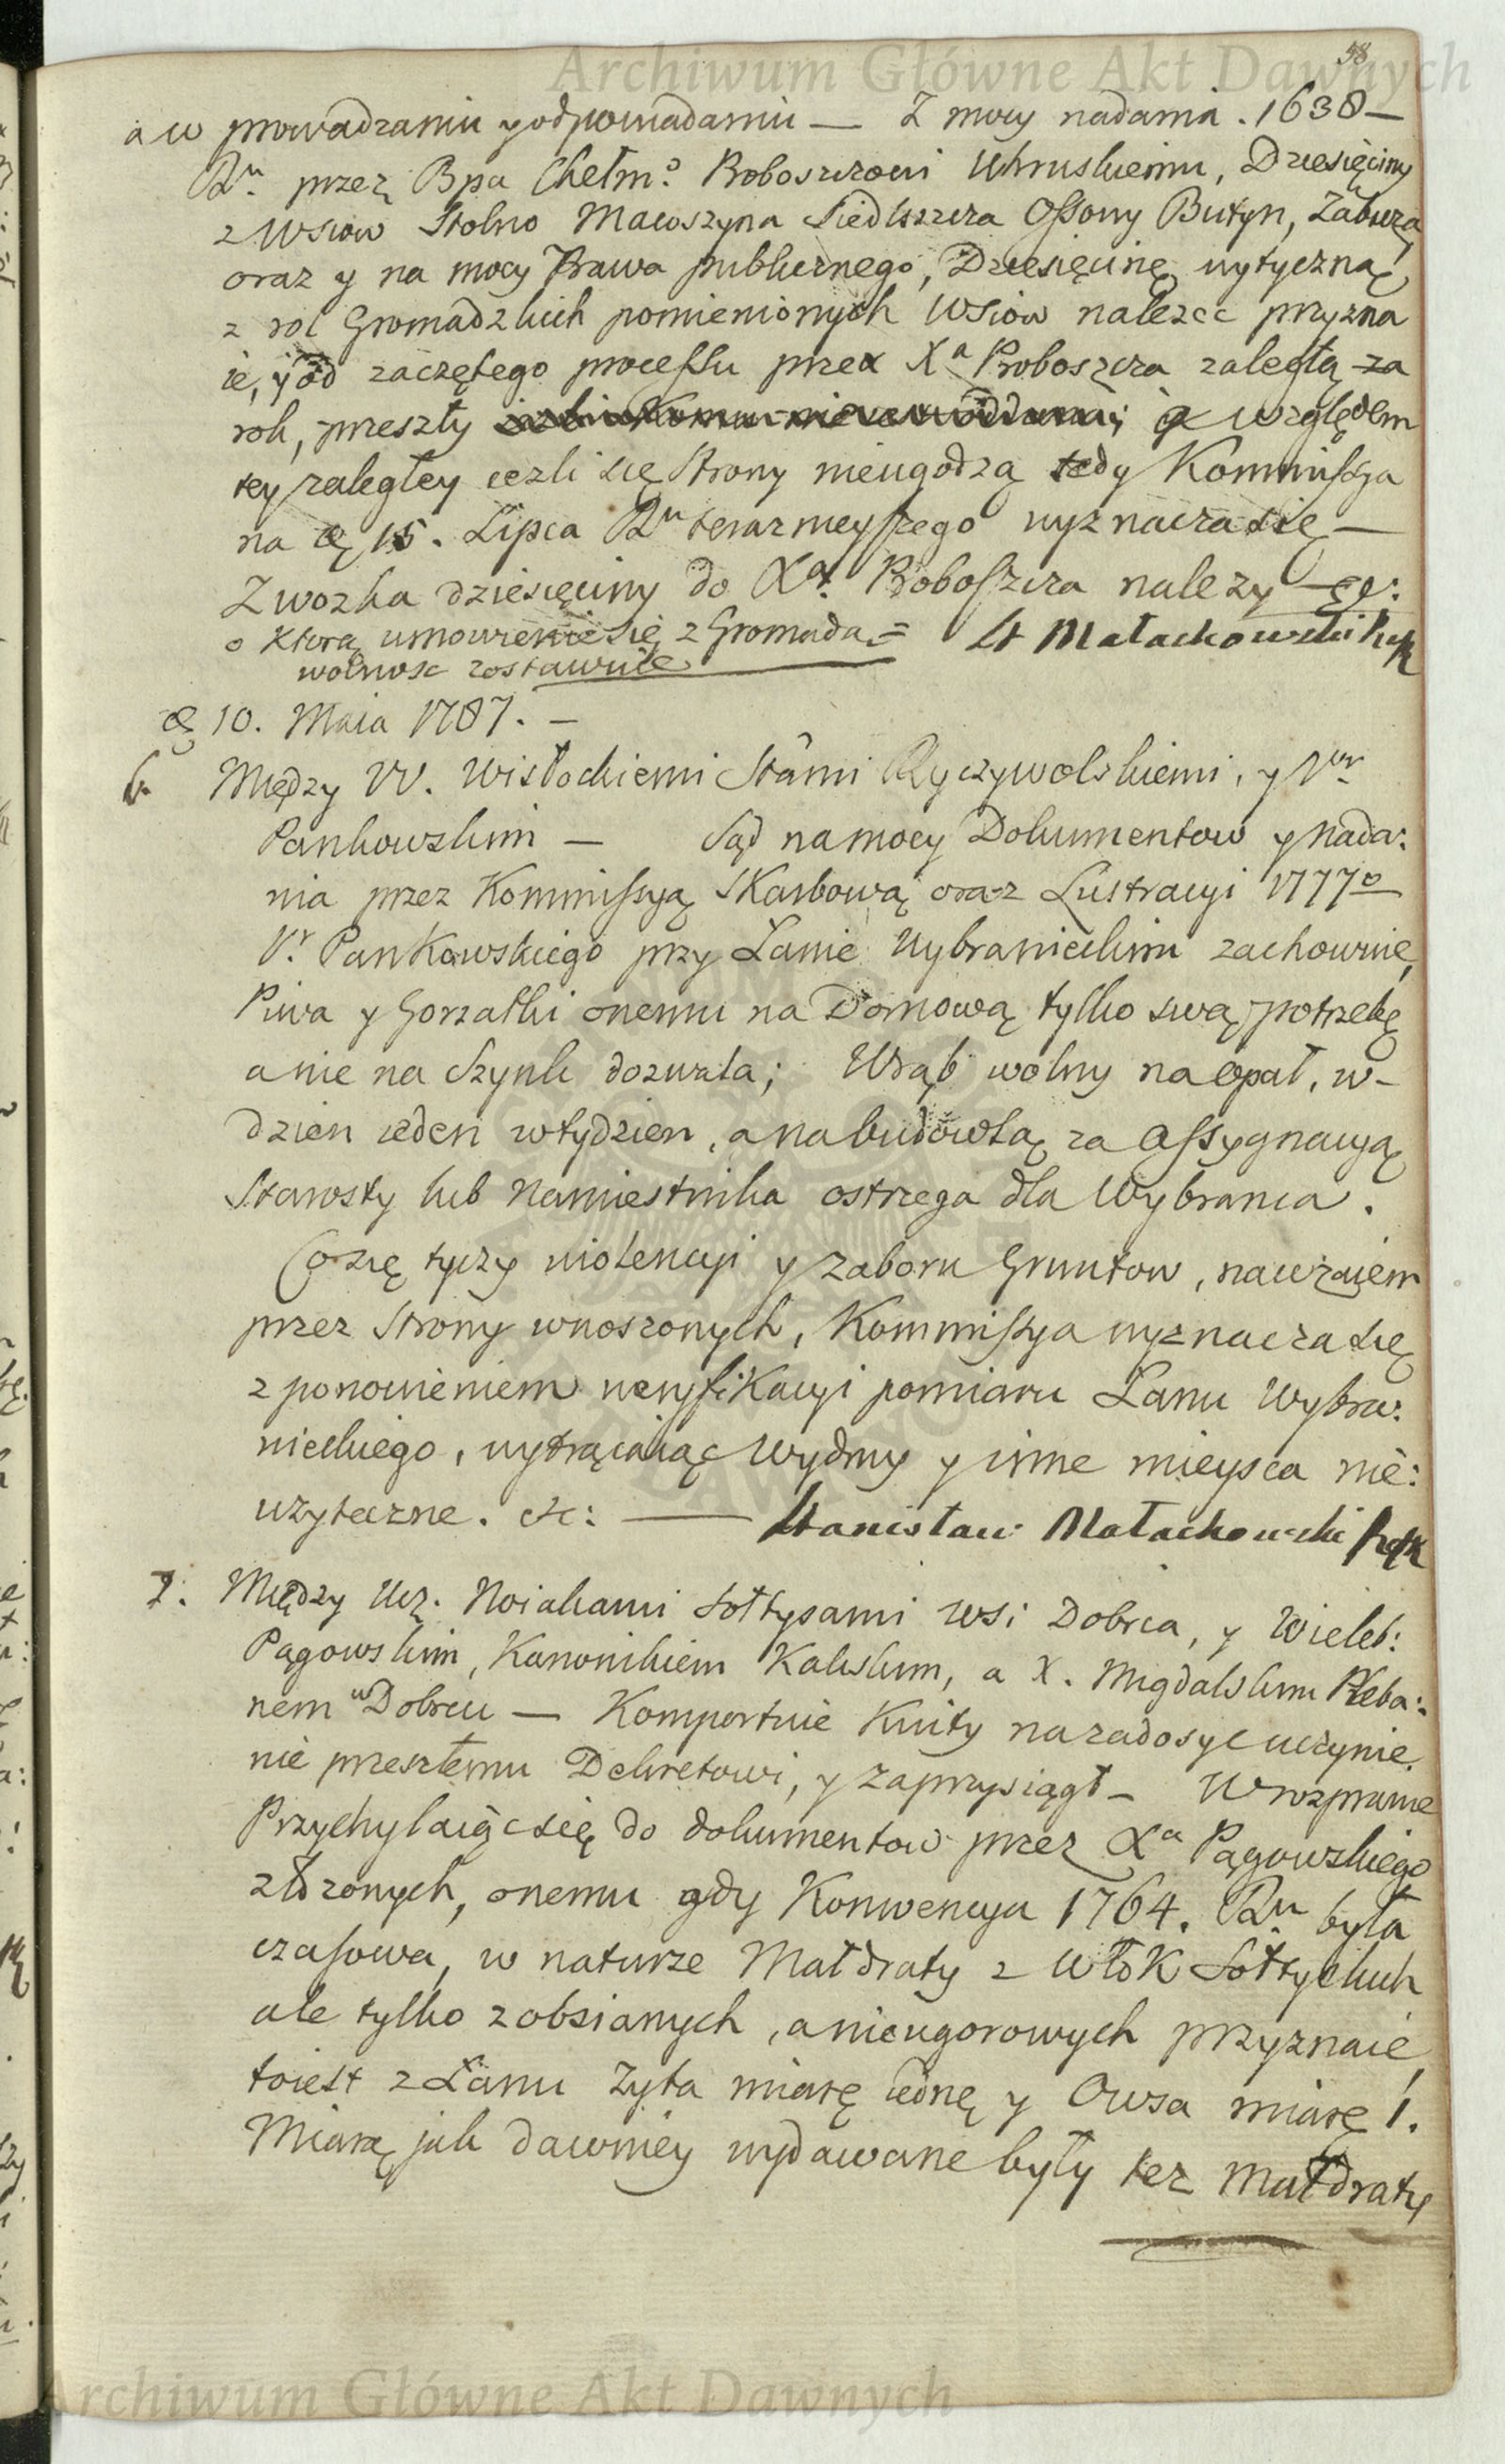 58
a w prowadzaniu y odpowiadaniu — Z mocy nadania . 1638 —
Ru. przez Bpa Chełmo. Proboszczowi Uhruskiemu, Dziesięciny
z Wsiow Stolno Macoszyna Siedliszcza Ossowy Butyn, Zabuza,
oraz y na mocy Prawa publicznego, Dziesięcinę wytyczną
z rol Gromadzkich pomienionych Wsiow należeć przyzna
ie, y od zaczętego processu przez Xa Proboszcza zaległą za
rok, przeszły względem
tey zaległey ieżli się strony nieugodzą tedy Kommissya
na d. 15. Lipca Ru teraznieyszego wyznacza się —
Zwozka dziesięciny do Xa. Proboszcza należy —
o ktorą umowienie się z Gromadą =
wolność zostawuie
St Małachowski
d 10. Maia 1787. —
6. Między W. Wisłockiemi Stâmi Ryczywolskiemi, y Ur
Pankowskim — Sąd na mocy Dokumentow y nada:
nia przez Kommissyą Skarbową oraz Lustracyi 1777o
Ur. Pankowskiego przy Łanie Wybranieckim zachowuie,
Piwa y Gorzałki onemu na Domową tylko swą potrzebę
a nie na Szynk dozwala; Wrąb wolny na opał, w-
dzien ieden w tydzien, a na budowlą za Assygnacyą
Starosty lub Namiestnika ostrzega dla Wybranca .
Co się tyczy violencyi y zaboru Gruntow, nawzaiem
przez Strony wnoszonych, Kommissya wyznacza się
z ponowieniem weryfikacyi pomiaru Łanu Wybra:
nieckiego, wytrącaiąc Wydmy y inne mieysca nie:
użyteczne . etc: — Stanisław Małachowski
7. Między Ucz. Noiakami Sołtysami wsi Dobrca, y Wieleb:
Pągowskim, Kanonikiem Kaliskim, a X. Migdalskim Pleba:
nem w Dobrcu — Komportuie Kwity na zadosyc uczynie
nie przeszłemu Dekretowi, y zaprzysiągł — W rozprawie
Przychylaiąc się do dokumentow przez Xa Pągowskiego
złożonych, onemu gdy Konwencya 1764. Ru była
czasowa, w naturze Małdraty z Włok Sołtyskich
ale tylko z obsianych, a nieugorowych przyznaie,
toiest z Łanu Zyta miarę iednę y Owsa miarę 1.
Miarą jak dawniey wydawane były też Małdraty
Archiwum Główne Akt Dawnych
Archiwum Główne Akt Dawnych